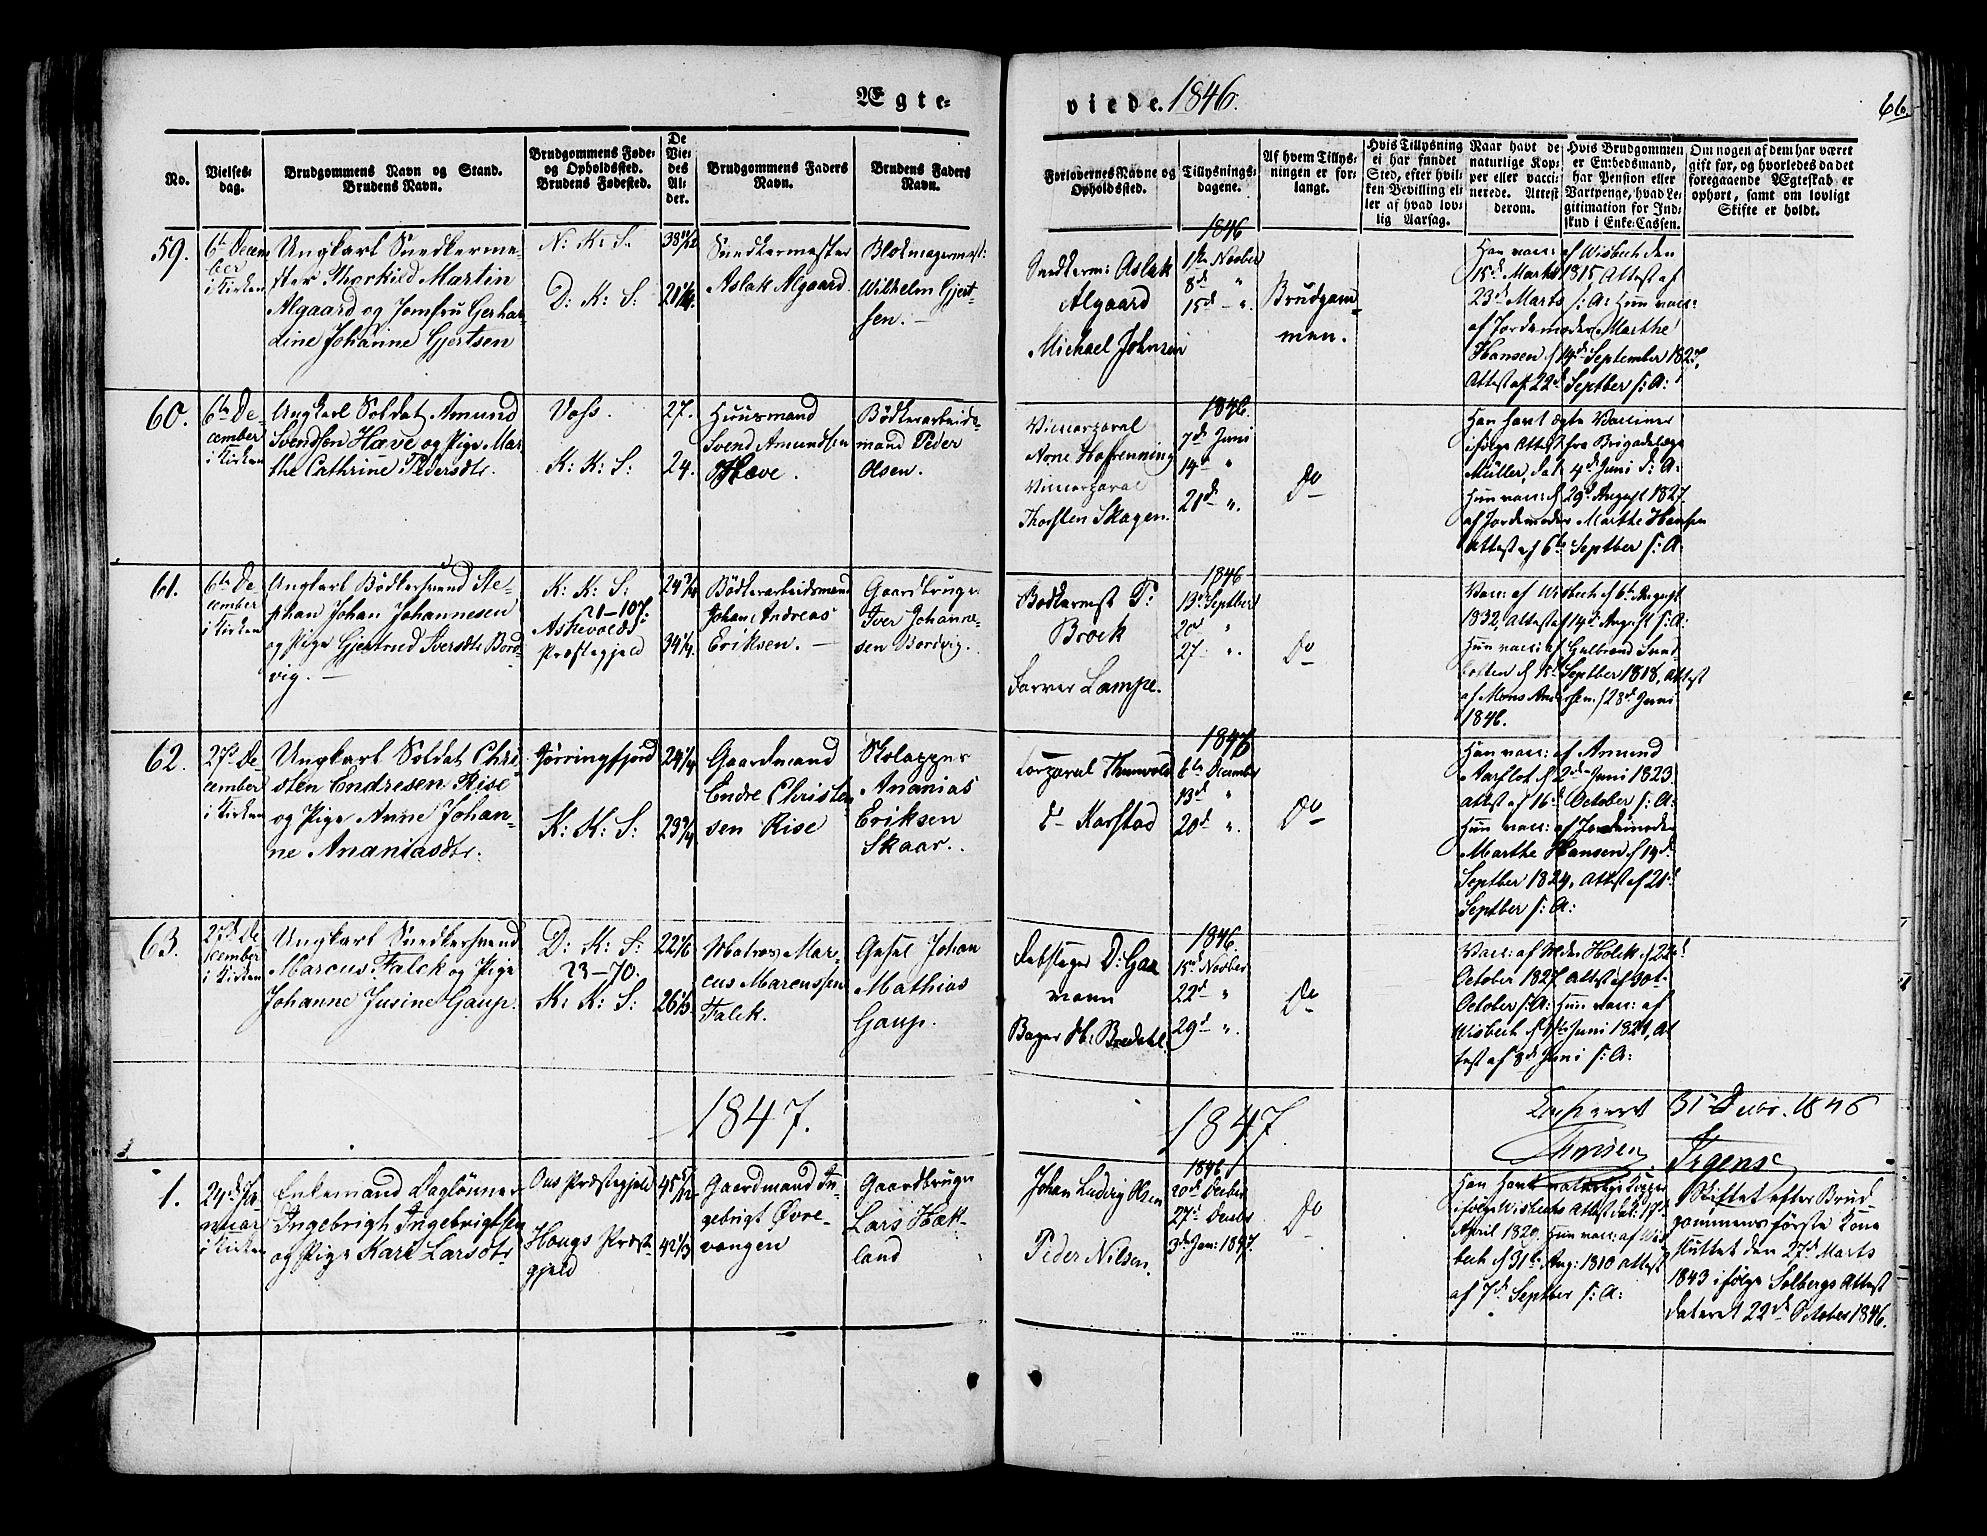 Ægte-
viede. 1846.
66.
No.
Vielses-
dag.
Brudgommens Navn og Stand.
Brudens Navn.
Brudgommens Føde-
og Opholdssted.
Brudens Fødested.
De
Vie-
des
Al-
der.
Brudgommens Faders
Navn.
Brudens Faders
Navn.
Forlovernes Navne og
Opholdssted.
Tillysnings-
dagene.
Af hvem Tillys-
ningen er for-
langt.
Hvis Tillysning
ei har fundet
Sted, efter hvil-
ken Bevilling el-
ler af hvad lov-
lig Aarsag.
Naar havt de
naturlige Kop-
per eller vacci-
nerede. Attest
derom.
Hvis Brudgommen
er Embedsmand,
har Pension eller
Vartpenge, hvad Le-
gitimation for Ind-
skud i Enke-Cassen.
Om nogen af dem har været
gift før, og hvorledes da det
foregaaende Ægteskab er
ophørt, samt om lovligt
Skifte er holdt.
59.
6te Decem-
ber
i Kirken
Ungkarl Snedkerme-
ster Thorkild Martin
Algaard og Jomfru Gerhar-
dine Johanne Gjertsen
N: K: S.
D: K: S:
38 11/12
21 1/4.
Snedkermester
Aslak Algaard
Blokmagermest:
Wilhelm Gjert-
sen.
Snedkerm: Aslak
Algaard
Michael Johnsen
1846
1ste Novber
8d "
15d - ".
Brudgom-
men.
Han vacc: af Wisbech den
15d Marts 1815 Attest af
23d Marts s: A: Hun vacc:
af Jordemoder Marthe
Hansen d 14d September 1827,
Attest af 22d Septber s: A:
60.
6te De-
cember
i Kirken
Ungkarl Soldat Amund
Svendsen Hæve og Pige Mar-
the Cathrine Pedersdtr.
Voss.
K: K: S:
27.
24.
Huusmand
Svend Amundsen
Hæve.
Bødkerarbeids-
mand Peder
Olsen.
Vicecorporal
Arne Hafrenning
Vicecorporal
Thorsten Skagen.
1846.
7d Juni
14d "
21d - ".
Do
Han havt ægte Vacciner
ifølge Attest fra Brigadelæge
Müller, dat. 4d Juni d: A:
Hun vacc: d 29d August 1827
af Jordemoder Marthe Hansen
Attest af 6te Septber s: A:
61.
6te De-
cember
i Kirken
Ungkarl Bødkersvend Ste-
phan Johan Johannesen
og Pige Gjertrud Iversdtr Bord-
vig.
K: K: S:
21-107.
Askevolds
Præstegjeld
34 1/4.
Bødkerarbeidsmand
Johan Andreas
Eriksen.
Gaardbruger
Iver Johanne-
sen Bordvig.
Bødkermst P:
Brock
Farver Lampe.
1846
13d Septber
20d "
27. ".
Do
Vacc: af Wisbech d 6te August
1832, Attest af 14d August s: A:
Septber 1818, Attest
af Mons Andersen d 28d Juni
1846.
62.
27d De-
cember
i Kirken
Ungkarl Soldat Chri-
sten Endresen Rise
og Pige Anne Johan-
ne Ananiasdtr.
Jørringfjord
K: K: S:
24 1/4
23 3/4
Gaardmand
Endre Christen-
sen Rise
Ananias
Eriksen
Skaar.
d- Karstad
1846
6te December
13d "
20d ".
Do
Han vacc: af Amund
Aarflot d 2d Juni 1823
Attest af 16d October s: A:
Hun vacc: af Jordemoder
Marthe Hansen d 14d
Septber 1824, Attest af 21d
Septber s: A:
63.
27d De-
cember
i Kirken
Ungkarl Snedkersvend
Marcus Falck og Pige
Johanne Jusine Gaup.
D: K: S:
23-70.
K: K: S:
22 1/6
26 1/3.
Matros Mar-
cus Marcussen
Falck.
Gesel Johan
Mathias
Gaup.
Rebslager D: Gar-
mann
Bager H: Bredahl.
1846.
15d Novber
22d "
29d - ".
Do
October 1827 Attest af 30t
October s: A: Hun vacc: af
Wisbech d 1ste Juni 1821, At-
test af 8d Juni s: A:
1847.
1847.
31 Decbr. 1846
Irgens
1.
24d Ja-
nuar
i Kirken
Enkemand Daglønner
Ingebrigt Ingebrigtsen
og Pige Kari Larsdtr
Ous Præstegjeld
Hougs Præst-
gjeld
45 5/12.
42 1/3
Gaardmand In-
gebrigt Øvre-
vangen
Gaardbruger
Lars Hæk-
land
Johan Ludvig Olsen
Peder Nilsen.
1846
20d Decber
27d Decbr
3d Jan: 1847.
Do
Han havt naturlige Kopper
ifølge Wisbechs Attest dat: 17d
April 1820. Hun vacc: af Wis-
bech d 31te Aug: 1810 Attest
af 7d Septber s: A:
Skiftet efter Brud-
gommens første Kone
sluttet den 27d Marts
1843 ifølge Solbergs Attest
dateret 22d October 1846.